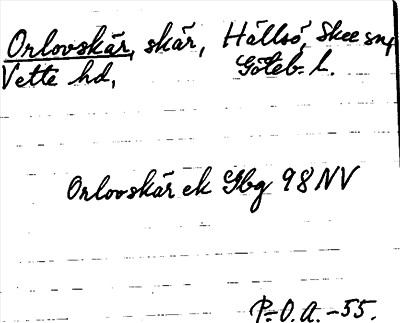 Orlovskär, skär, Hällsö, Skee sn,
Vette hd, Göteb. l.
Orlovskär ek Gbg 98 NV
P.O.A. -55.